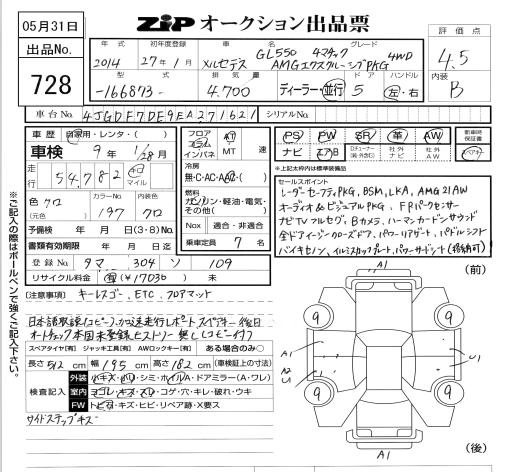 05月31日
ZIP オークション出品票
評価点
4.5
内装
B
出品No.
728
年式
2014
初年度登録
27年1月
車名
メルセデス
グレード
GL550 4マチック 4WD
AMGエクスクルーシブPKG
型式
-166873-
排気量
4.700
ディーラー・並行
ドア
5
ハンドル
左・右
車台No.
4JGDF7DE9EA271621
シリアルNo.
車歴
自家用・レンタ・( )
車検 9年 1/28月
走行
54,782
キロ
マイル
色
クロ
(元色)
カラーNo.
197
内装色
クロ
予備検 年 月 日迄 (3・8) No.
書類有効期限 年 月 日迄
登録No. タマ 304 ソ 109
リサイクル料金 有(¥17030) 無
フロア
コラム
インパネ
AT
MT
速
冷房
無・C・AC・AAC・( )
燃料
ガソリン・軽油・電気・
その他( )
Nox 適合・非適合
乗車定員 7 名
PS
PW
SR
革
AW
ナビ
エアB
社外ナビ
社外AW
新車時保証書
※上記太枠内は標準装備品
セールスポイント
レーダーセーフティPKG、BSM、LKA、AMG21AW
オーディオ&ビジュアルPKG、FRパークセンサー
ナビTVフルセグ、Bカメラ、ハーマンカードンサウンド
全ドアイージークローズドア、パワーリアゲート、パドルシフト
バイキセノン、イルミスカッフプレート、パワーサードシート(格納可)
(注意事項) キーレスゴー、ETC、フロアマット
オートチェック本国未登録ヒストリー無し(コピー付)
スペアタイヤ[有] ジャッキ工具[有] AWロックキー[有] ある場合のみ○
長さ 512cm 幅 195cm 高さ 182cm (車検証上の寸法)
検査記入
外装 小キズ・凹・シミ・ホイルA・ドアミラー(A・ワレ)
室内 ヨゴレ・キズ・スレ・コゲ・穴・キレ・破れ・ウキ
FW トビ石・キズ・ヒビ・リペア跡・X要ス
サイドステップキズ
※ご記入の際はボールペンで強くご記入下さい。
(前)
A1
9
9
A1
A2
U1
U1
9
9
A1
(後)